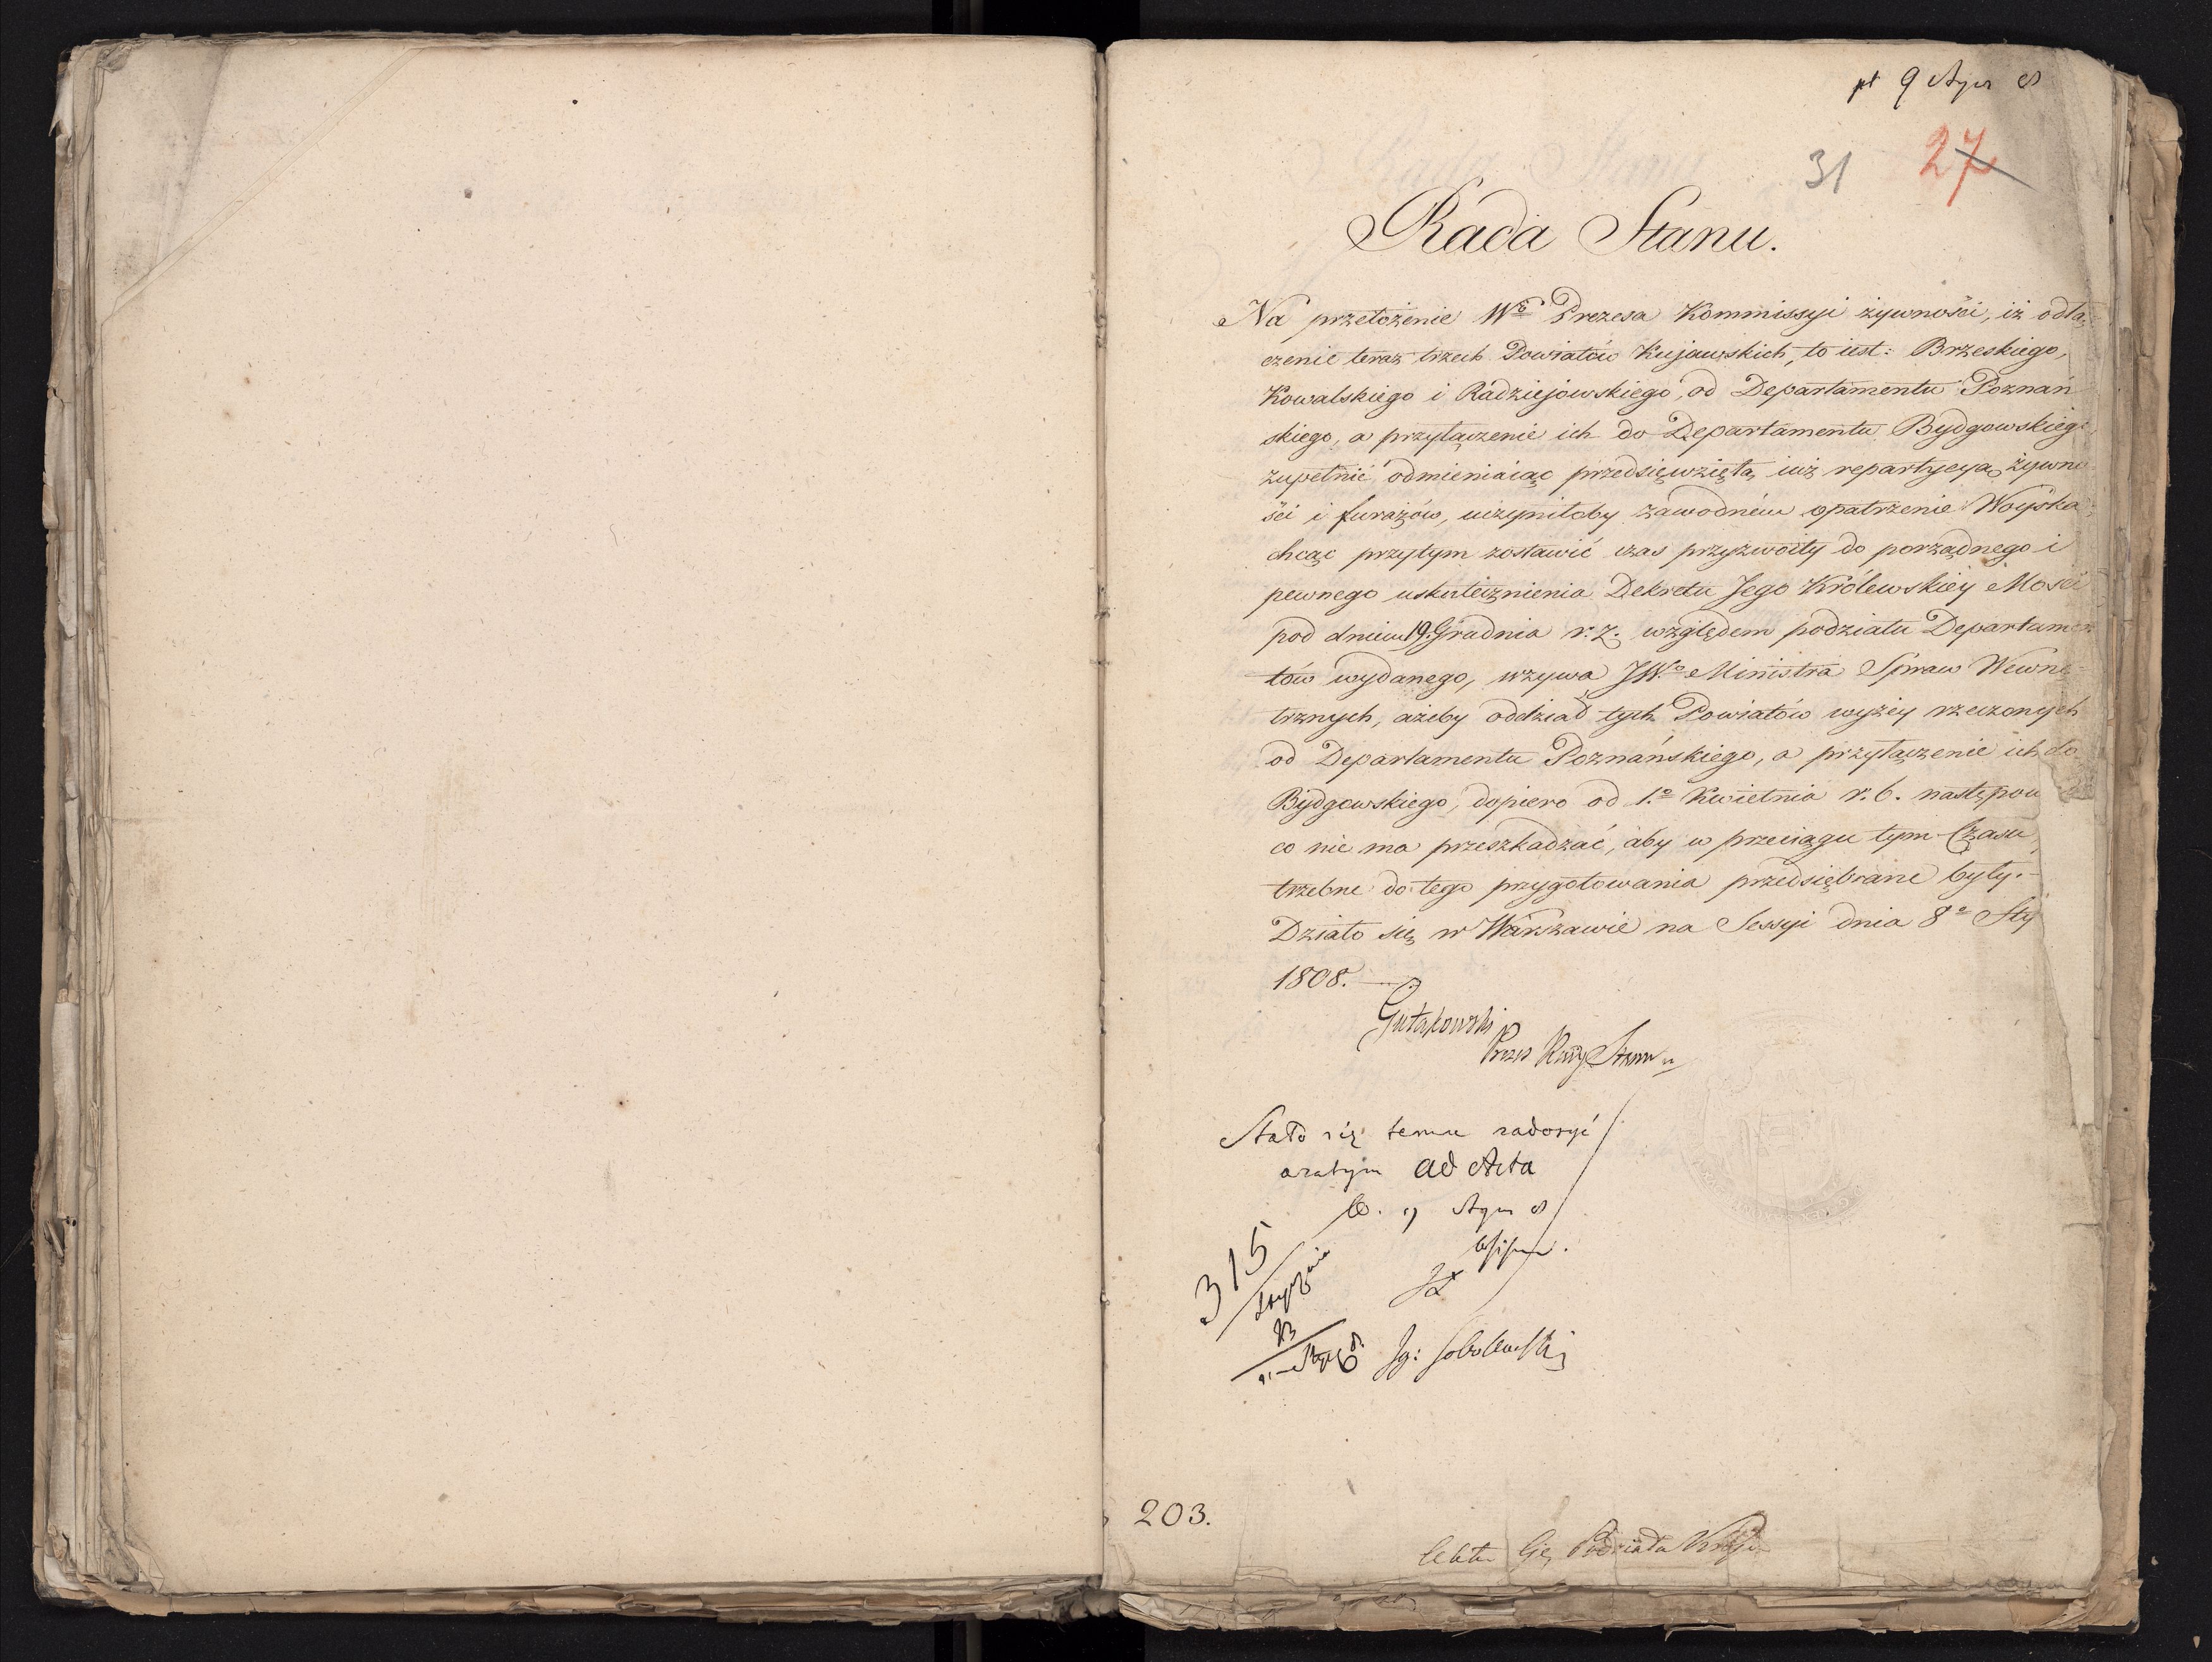 31 27
Rada Stanu.
Na przełożenie Wo Prezesa Kommissyi żywności, iż odłą
czenie teraz trzech Powiatów Kujawskich, to iest: Brzeskiego,
Kowalskiego i Radziejowskiego, od Departamentu Poznań
skiego, a przyłączenie ich do Departamentu Bydgowskiego,
zupełnie odmieniaiąc przedsięwziętą iuż repartycyą żywno
ści i furażów, uczyniłoby zawodném opatrzenie Woyska
chcąc przytym zostawić czas przyzwoity do porządnego i
pewnego uskutecznienia Dekretu Jego Królewskiéy Mości
pod dniem 19. Grudnia r. z. względem podziału Departamen
tów wydanego, wzywa JWo Ministra Spraw Wewnę=
trznych, ażeby oddział tych Powiatów wyżéy rzeczonych
od Departamentu Poznańskiego, a przyłączenie ich do
Bydgowskiego, dopiero od 1.o Kwietnia r. b. nastąpou
co nie ma przeszkadzać, aby w przeciągu tym Czasu
trzebne do tego przygotowania przedsiębrane były.-
Działo się w Warszawie na Sessyi dnia 8o Sty
1808.
Gutakowski
Prezes Rady Stanu
Stało się temu zadosyć
azatym ad Acta
315
Stycznia
Jg: Sobolewski
203.
Podziału Kraju